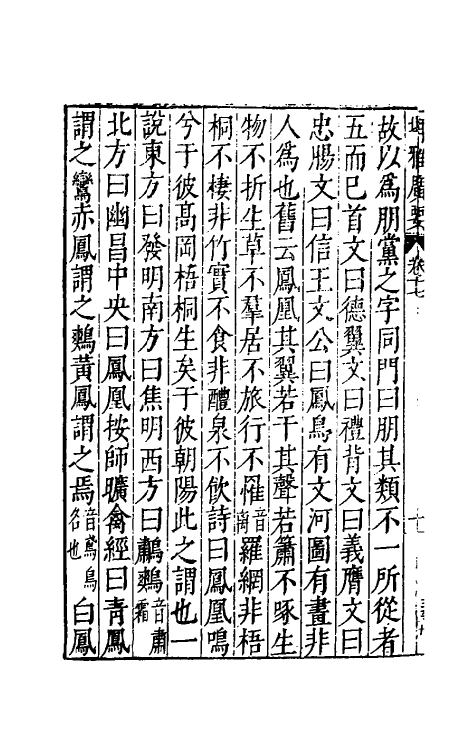 埤雅廣要 卷十七
故以爲朋黨之字同門曰朋其類不一所從者
五而已首文曰德翼文曰禮背文曰義膺文曰
忠膓文曰信王文公曰鳳鳥有文河圖有畫非
人爲也舊云鳳凰其翼若干其聲若簫不啄生
物不折生草不羣居不旅行不罹音離羅網非梧
桐不棲非竹實不食非醴泉不飲詩曰鳳凰鳴
兮于彼髙岡梧桐生矣于彼朝陽此之謂也一
說東方曰發明南方曰焦明西方曰鷫鷞音肅霜
北方曰幽昌中央曰鳳凰按師曠禽經曰青鳳
謂之鸞赤鳳謂之鶉黃鳳謂之焉音鳶鳥名也白鳳